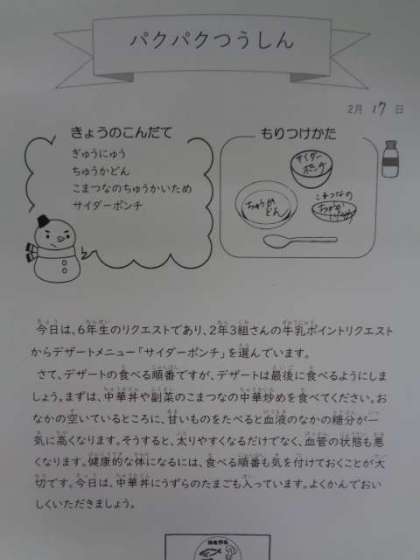 パクパクつうしん
2月 17 日
きょうのこんだて
ぎゅうにゅう
ちゅうかどん
こまつなのちゅうかいため
サイダーポンチ
もりつけかた
サイダー
ポンチ
ちゅうか
どん
こまつなの
今日は、6年生のリクエストであり、2年3組さんの牛乳ポイントリクエスト
からデザートメニュー「サイダーポンチ」を選んでいます。
さて、デザートの食べる順番ですが、デザートは最後に食べるようにしま
しょう。まずは、中華丼や副菜のこまつなの中華炒めを食べてください。お
なかの空いているところに、甘いものをたべると血液のなかの糖分が一
気に高くなります。そうすると、太りやすくなるだけでなく、血管の状態も悪
くなります。健康的な体になるには、食べる順番も気を付けておくことが大
切です。今日は、中華丼にうずらのたまごも入っています。よくかんでおい
しくいただきましょう。